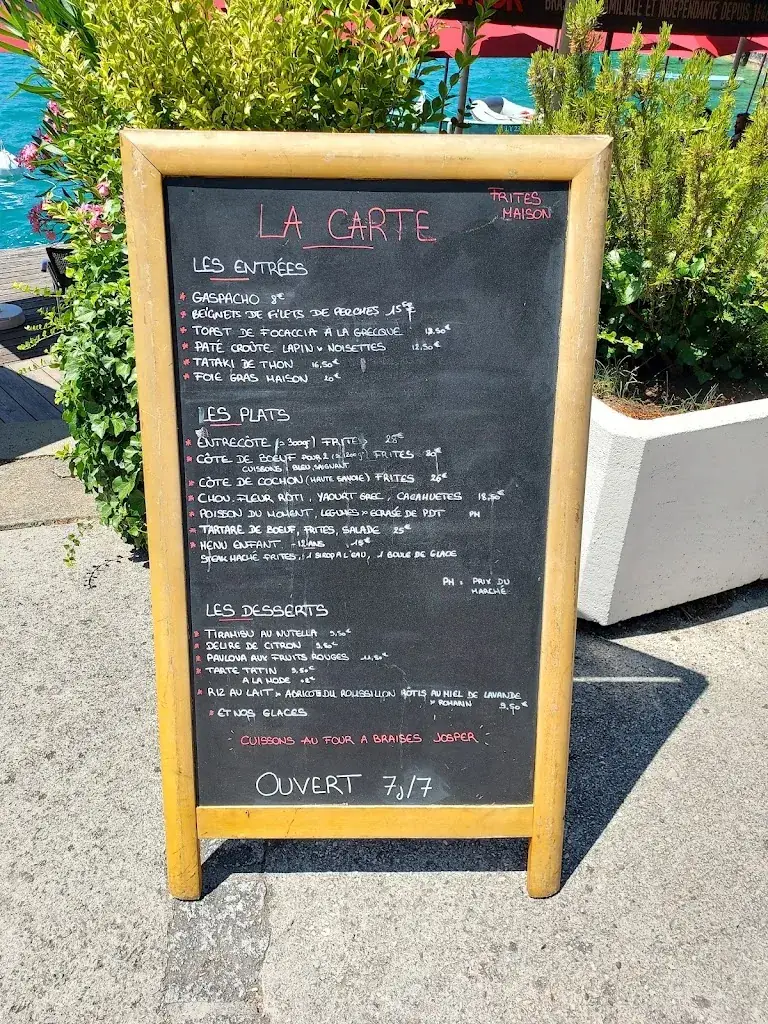 FAMILIALE ET INDÉPENDANTE DEPUIS
FRITES
MAISON
LA CARTE
LES ENTRÉES
* GASPACHO 8€
* BEIGNETS DE FILETS DE PERCHES 15
* TOAST DE FOCACCIA À LA GRECQUE
* PATÉ CROÛTE LAPIN & NOISETTES 12.50€
* TATAKI DE THON 16,50€
* FOIE GRAS MAISON 20€
LES PLATS
* ENTRECÔTE (± 300gr) FRITES 28€
* CÔTE DE BOEUF POUR 2 FRITES
CUISSONS: BLEU, SAIGNANT
* CÔTE DE COCHON (HAUTE SAVOIE) FRITES 26€
* CHOU-FLEUR RÔTI, YAOURT GREC, CACAHUETES 18,50€
* POISSON DU MOMENT, LEGUMES & ECRASÉ DE PDT PH
* TARTARE DE BOEUF, FRITES, SALADE 25€
* MENU ENFANT -12ANS 15€
STEAK HACHÉ FRITES, 1 SIROP A L'EAU, 1 BOULE DE GLACE
PH : PRIX DU
MARCHÉ
LES DESSERTS
* TIRAMISU AU NUTELLA 9,50€
* DELIRE DE CITRON 9,50€
* PAVLOVA AUX FRUITS ROUGES 11,50€
* TARTE TATIN 9,50€
A LA MODE +2€
* RIZ AU LAIT & ABRICOT DU ROUSSILLON RÔTIS AU MIEL DE LAVANDE
& ROMARIN 9,50€
* ET NOS GLACES
CUISSONS AU FOUR A BRAISES JOSPER
OUVERT 7J/7